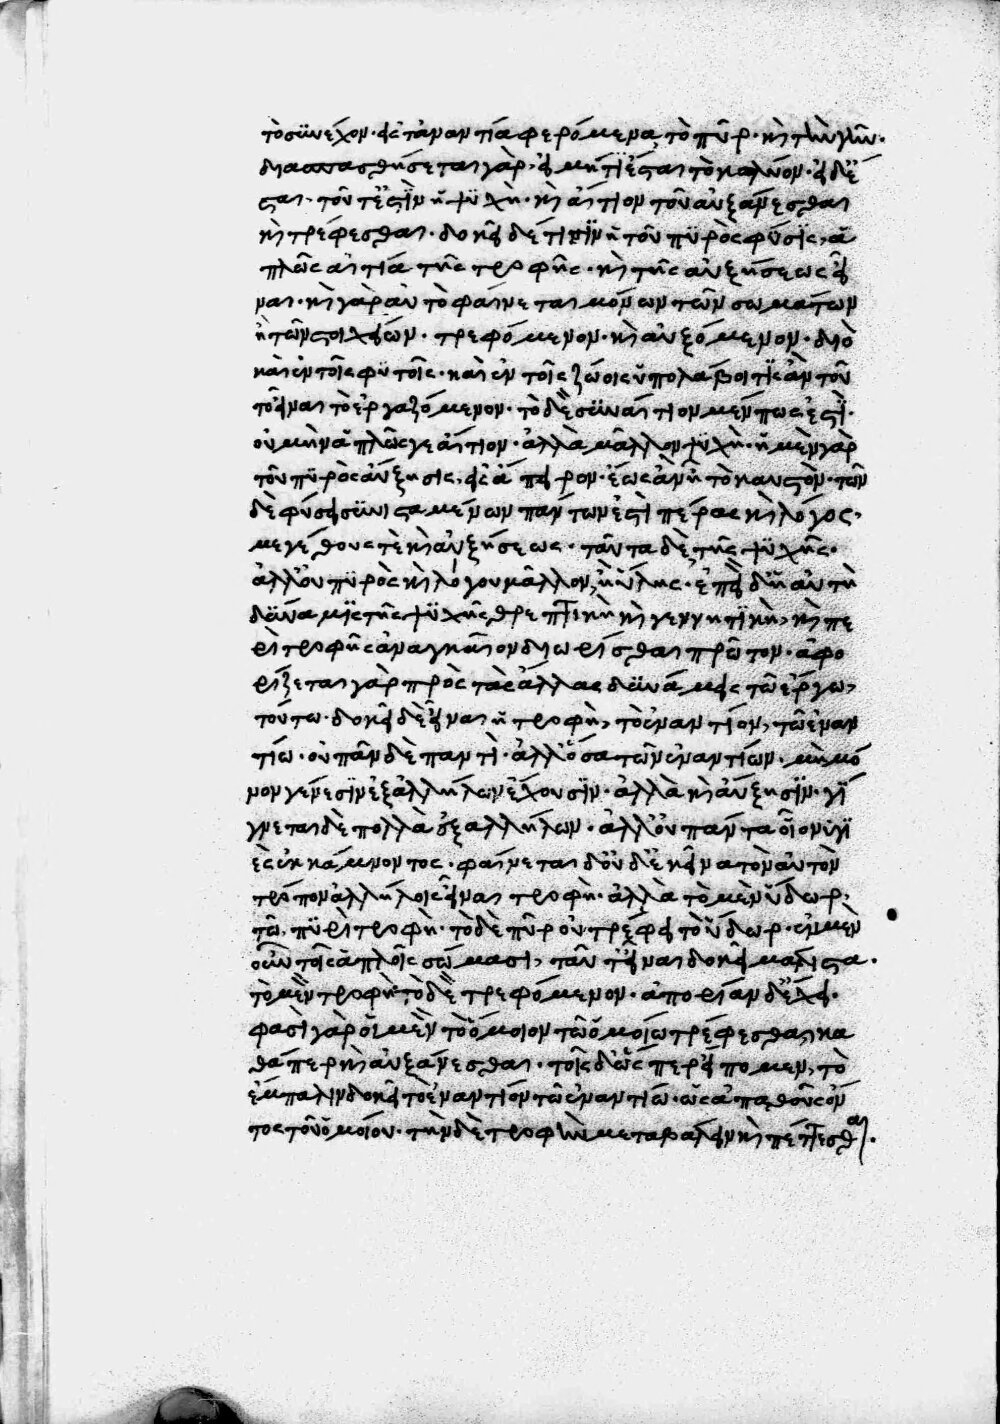 τὸ συνέχον· εἰς τἀναντία φερόμενα, τὸ πῦρ· καὶ τὴν γῆν·
διασπασθήσεται γὰρ, εἰ μή τι ἔσται τὸ κωλύον· εἰ δ' ἔ
σται· τοῦτ' ἐστὶν ἡ ψυχὴ· καὶ αἴτιον τοῦ αὐξάνεσθαι
καὶ τρέφεσθαι· δοκεῖ δέ τισιν ἡ τοῦ πυρὸς φύσις, ἁ
πλῶς αἰτία τῆς τροφῆς· καὶ τῆς αὐξήσεως εἶ
ναι· καὶ γὰρ αὐτὸ φαίνεται μόνων τῶν σωμάτων
ἢ τῶν στοιχείων· τρεφόμενον· καὶ αὐξόμενον· διὸ
καὶ ἐν τοῖς φυτοῖς· καὶ ἐν τοῖς ζώοις ὑπολάβοι τις ἂν τοῦ
το εἶναι τὸ ἐργαζόμενον· τὸ δὲ συναίτιον μέν πως ἐστὶ·
οὐ μὴν ἁπλῶς γε αἴτιον· ἀλλὰ μᾶλλον ψυχὴ· ἡ μὲν γὰρ
τοῦ πυρὸς αὔξησις, εἰς ἄπειρον· ἕως ἂν ἦ τὸ καυστὸν· τῶν
δὲ φύσει συνισταμένων πάντων ἐστὶ πέρας καὶ λόγος,
μεγέθους τὲ καὶ αὐξήσεως· ταῦτα δὲ τῆς ψυχῆς·
ἀλλ' οὐ πυρὸς καὶ λόγου μᾶλλον, ἢ ὕλης· ἐπεὶ δ' ἡ αὐτὴ
δύναμις τῆς ψυχῆς θρεπτικὴ καὶ γεννητικὴ, καὶ πε
ρὶ τροφῆς ἀναγκαῖον διωρίσθαι πρῶτον· ἀφο
ρίζεται γὰρ πρὸς τὰς ἄλλας δυνάμεις τῶ ἔργω,
τούτω· δοκεῖ δὲ εἶναι ἡ τροφὴ, τὸ ἐναντίον, τῶ ἐναν
τίω· οὐ πᾶν δὲ παντὶ· ἀλλ' ὅσα τῶν ἐναντίων· μὴ μό
νον γένεσιν ἐξ ἀλλήλων ἔχουσιν· ἀλλὰ καὶ αὔξησιν· γί
γνεται δὲ πολλὰ ἐξ ἀλλήλων· ἀλλ' οὐ πάντα οἷον ὑγι
ὲς ἐκ κάμνοντος· φαίνεται δ' οὐδ' ἐκεῖνα τὸν αὐτὸν
τρόπον ἀλλήλοις εἶναι τροφὴ· ἀλλὰ τὸ μὲν ὕδωρ,
τῶ, πυρὶ τροφὴ· τὸ δὲ πῦρ οὐ· τρέφει τὸ ὕδωρ· ἐν μὲν
οὖν τοῖς ἁπλοῖς σώμασι, ταῦτ' εἶναι δοκεῖ μάλιστα·
τὸ μὲν τροφὴ· τὸ δὲ τρεφόμενον· ἀπορίαν δ' ἔχει·
φασὶ γὰρ οἱ μὲν τὸ ὅμοιον τῶ ὁμοίω τρέφεσθαι, κα
θάπερ καὶ αὐξάνεσθαι· τοῖς δ' ὥσπερ εἴπομεν, τὸ
ἔμπαλιν δοκεῖ τὸ ἐναντίον τῶ ἐναντίω· ὡς ἀπαθοῦς ὄν
τος τοῦ ὁμοίου· τὴν δὲ τροφὴν μεταβάλλειν καὶ πέττεσθαι·